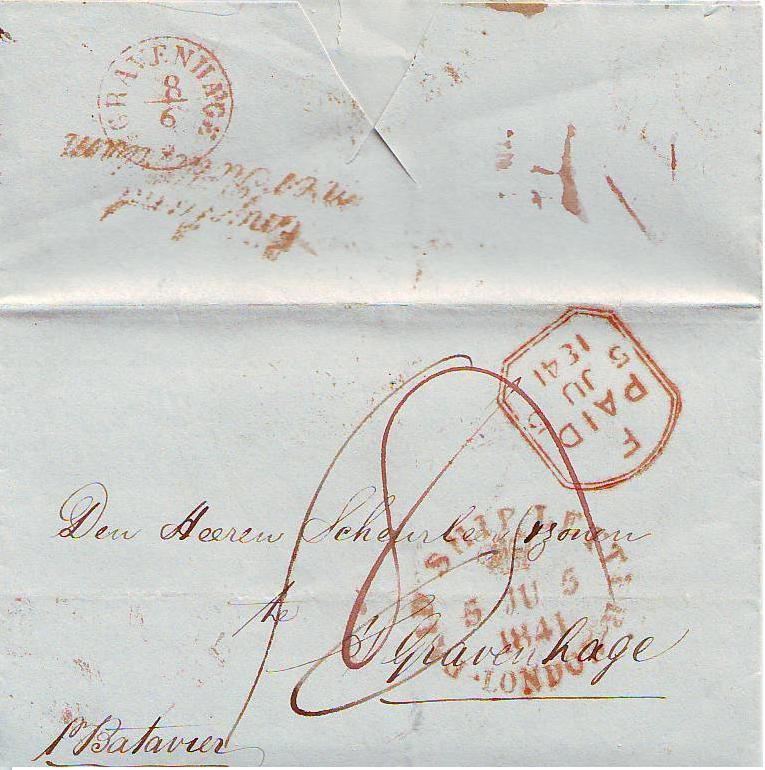 GRAVENHAGE
8
6
F
PAID
JU
5
1841
Den Heeren Scheurle Zonen
SHIP LETTER
5 JU 5
1841
LONDON
te
S Gravenhage
pr Batavier